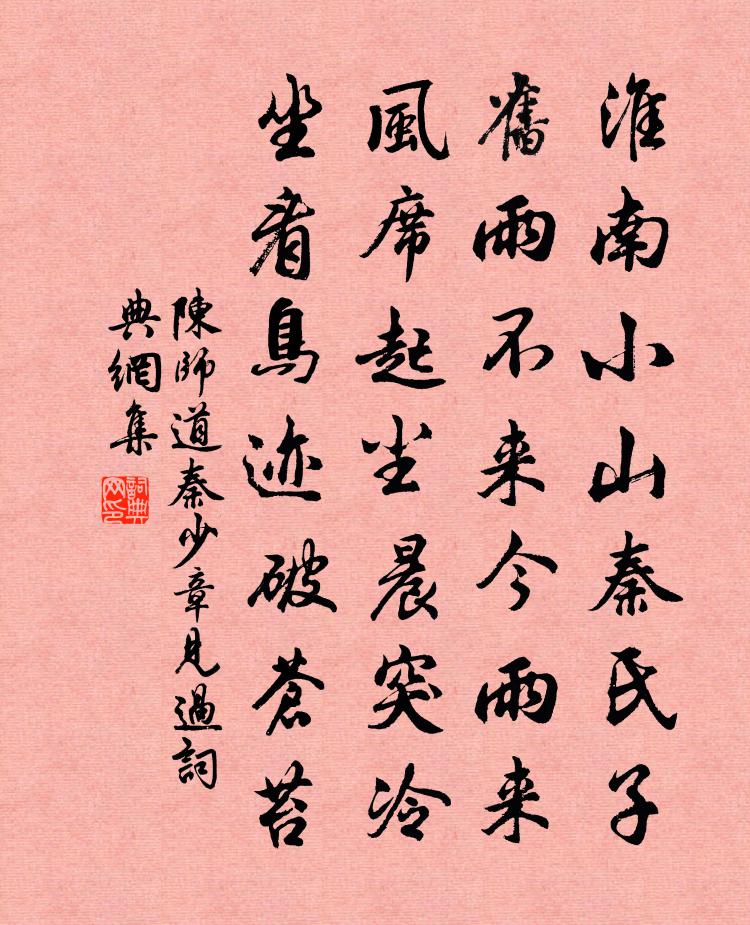 淮南小山秦氏子
舊雨不来今雨来
風席起坐晨突冷
坐看鳥迹破蒼苔
陳師道秦少章見過詞
典網集
詞典网印